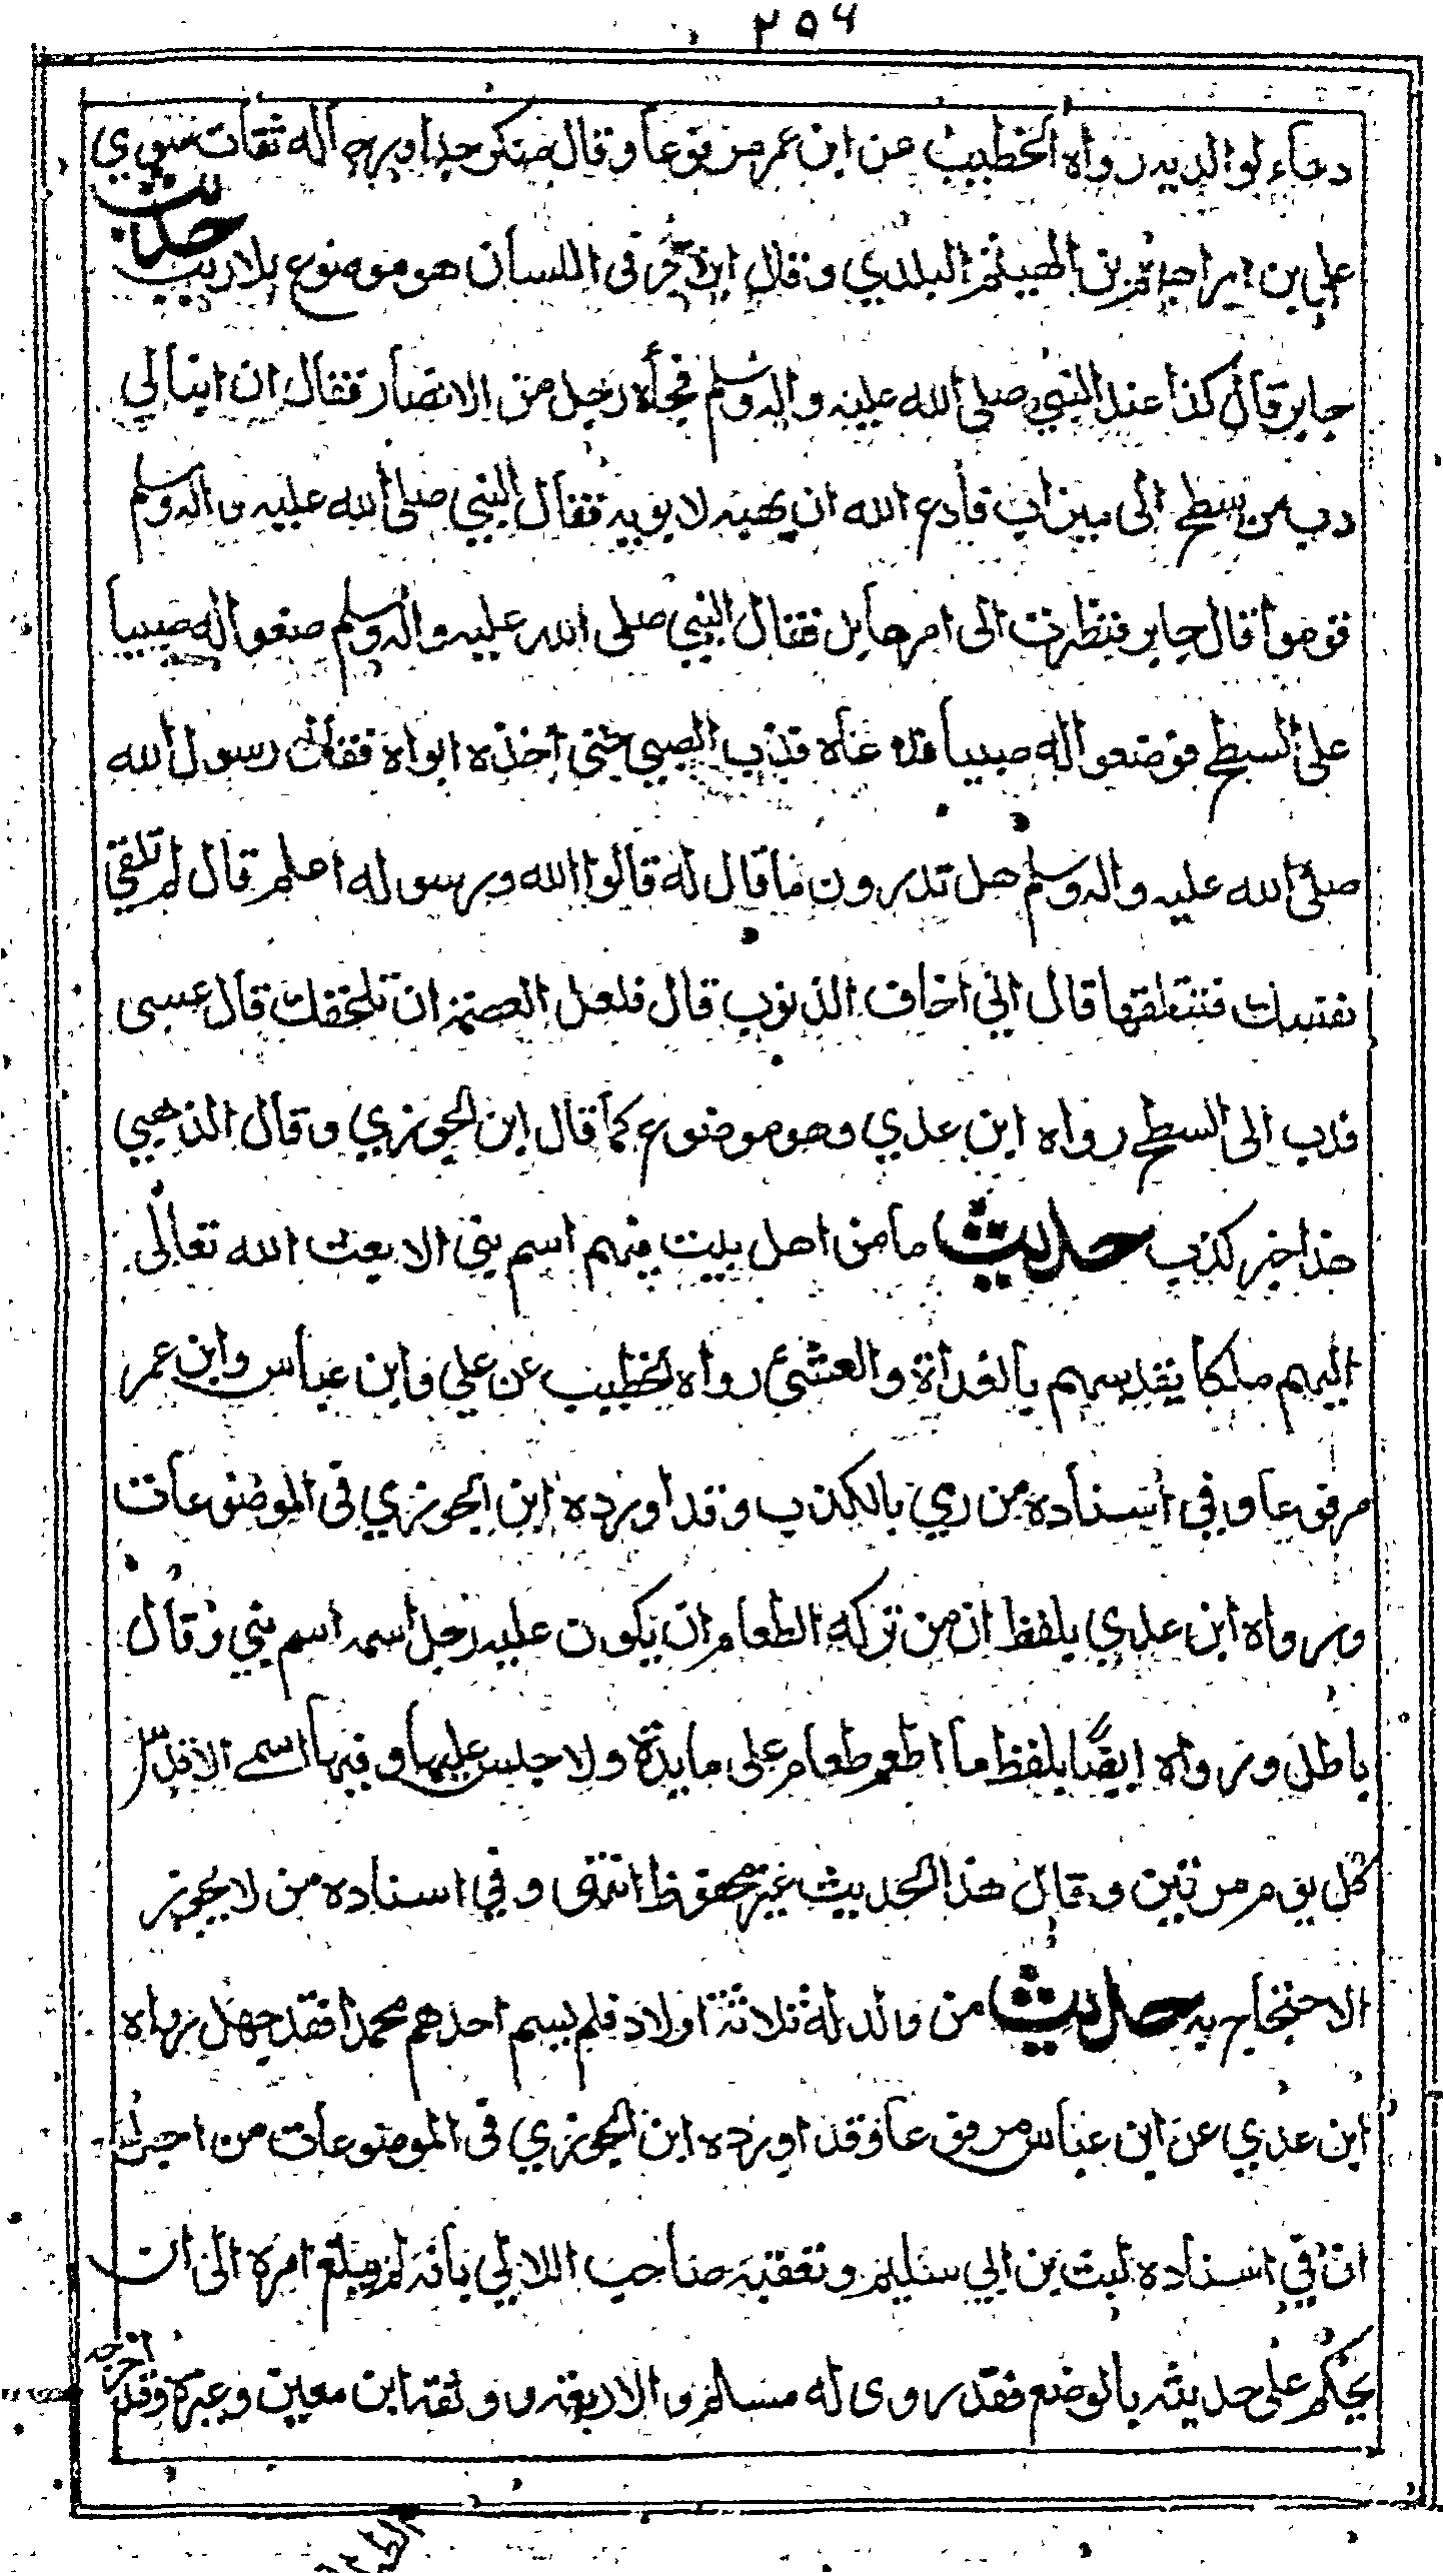 ٢٥٦
دعاء لوالديه رواه الخطيب عن ابن عمر مرفوعا وقال منكر جدا ورجاله ثقات سوى
علي بن ابراهيم بن الهيثم البلدي وقال ابن حجر في اللسان هو موضوع بلا ريب حديث
جابر قال كنا عند النبي صلى الله عليه واله وسلم فجأه رجل من الانصار فقال ان ابنا لي
دب من سطح الى ميزاب فادع الله ان يهبه لابويه فقال النبي صلى الله عليه واله وسلم
قوموا قال جابر فنظرت الى امر هايل فقال النبي صلى الله عليه واله وسلم ضعوا له صبيا
على السطح فوضعوا له صبيا فدعاه فدب الصبي حتى اخذه ابواه فقال رسول الله
صلى الله عليه واله وسلم هل تدرون ما قال له قالوا الله ورسوله اعلم قال لم تلقي
نفسك فتتلفها قال اني اخاف الذنوب قال فلعل العصمة ان تلحقك قال عسى
فدب الى السطح رواه ابن عدي وهو موضوع كما قال ابن الجوزي وقال الذهبي
هذا خبر كذب حديث ما من اهل بيت فيهم اسم نبي الا بعث الله تعالى
اليهم ملكا يقدسهم بالغداة والعشي رواه الخطيب عن علي وابن عباس وابن عمر
مرفوعا وفي اسناده من رمي بالكذب وقد اورده ابن الجوزي في الموضوعات
ورواه ابن عدي بلفظ ان من تركة الطعام ان يكون عليه رجل اسمه اسم نبي وقال
باطل ورواه ايضا بلفظ ما اطعم طعام على مايدة ولا جلس عليها وفيها اسمي الا قدس
كل يوم مرتين وقال هذا الحديث غير محفوظ انتهى وفي اسناده من لا يجوز
الاحتجاج به حديث من ولد له ثلاثة اولاد فلم يسم احدهم محمدا فقد جهل رواه
ابن عدي عن ابن عباس مرفوعا وقد اورده ابن الجوزي في الموضوعات من اجل
ان في اسناده ليث بن ابي سليم وتعقبه صاحب اللالي بانه لم يبلغ امره الى ان
يحكم على حديثه بالوضع فقد روى له مسلم والاربعة ووثقه ابن معين وغيره وقد اخرجه